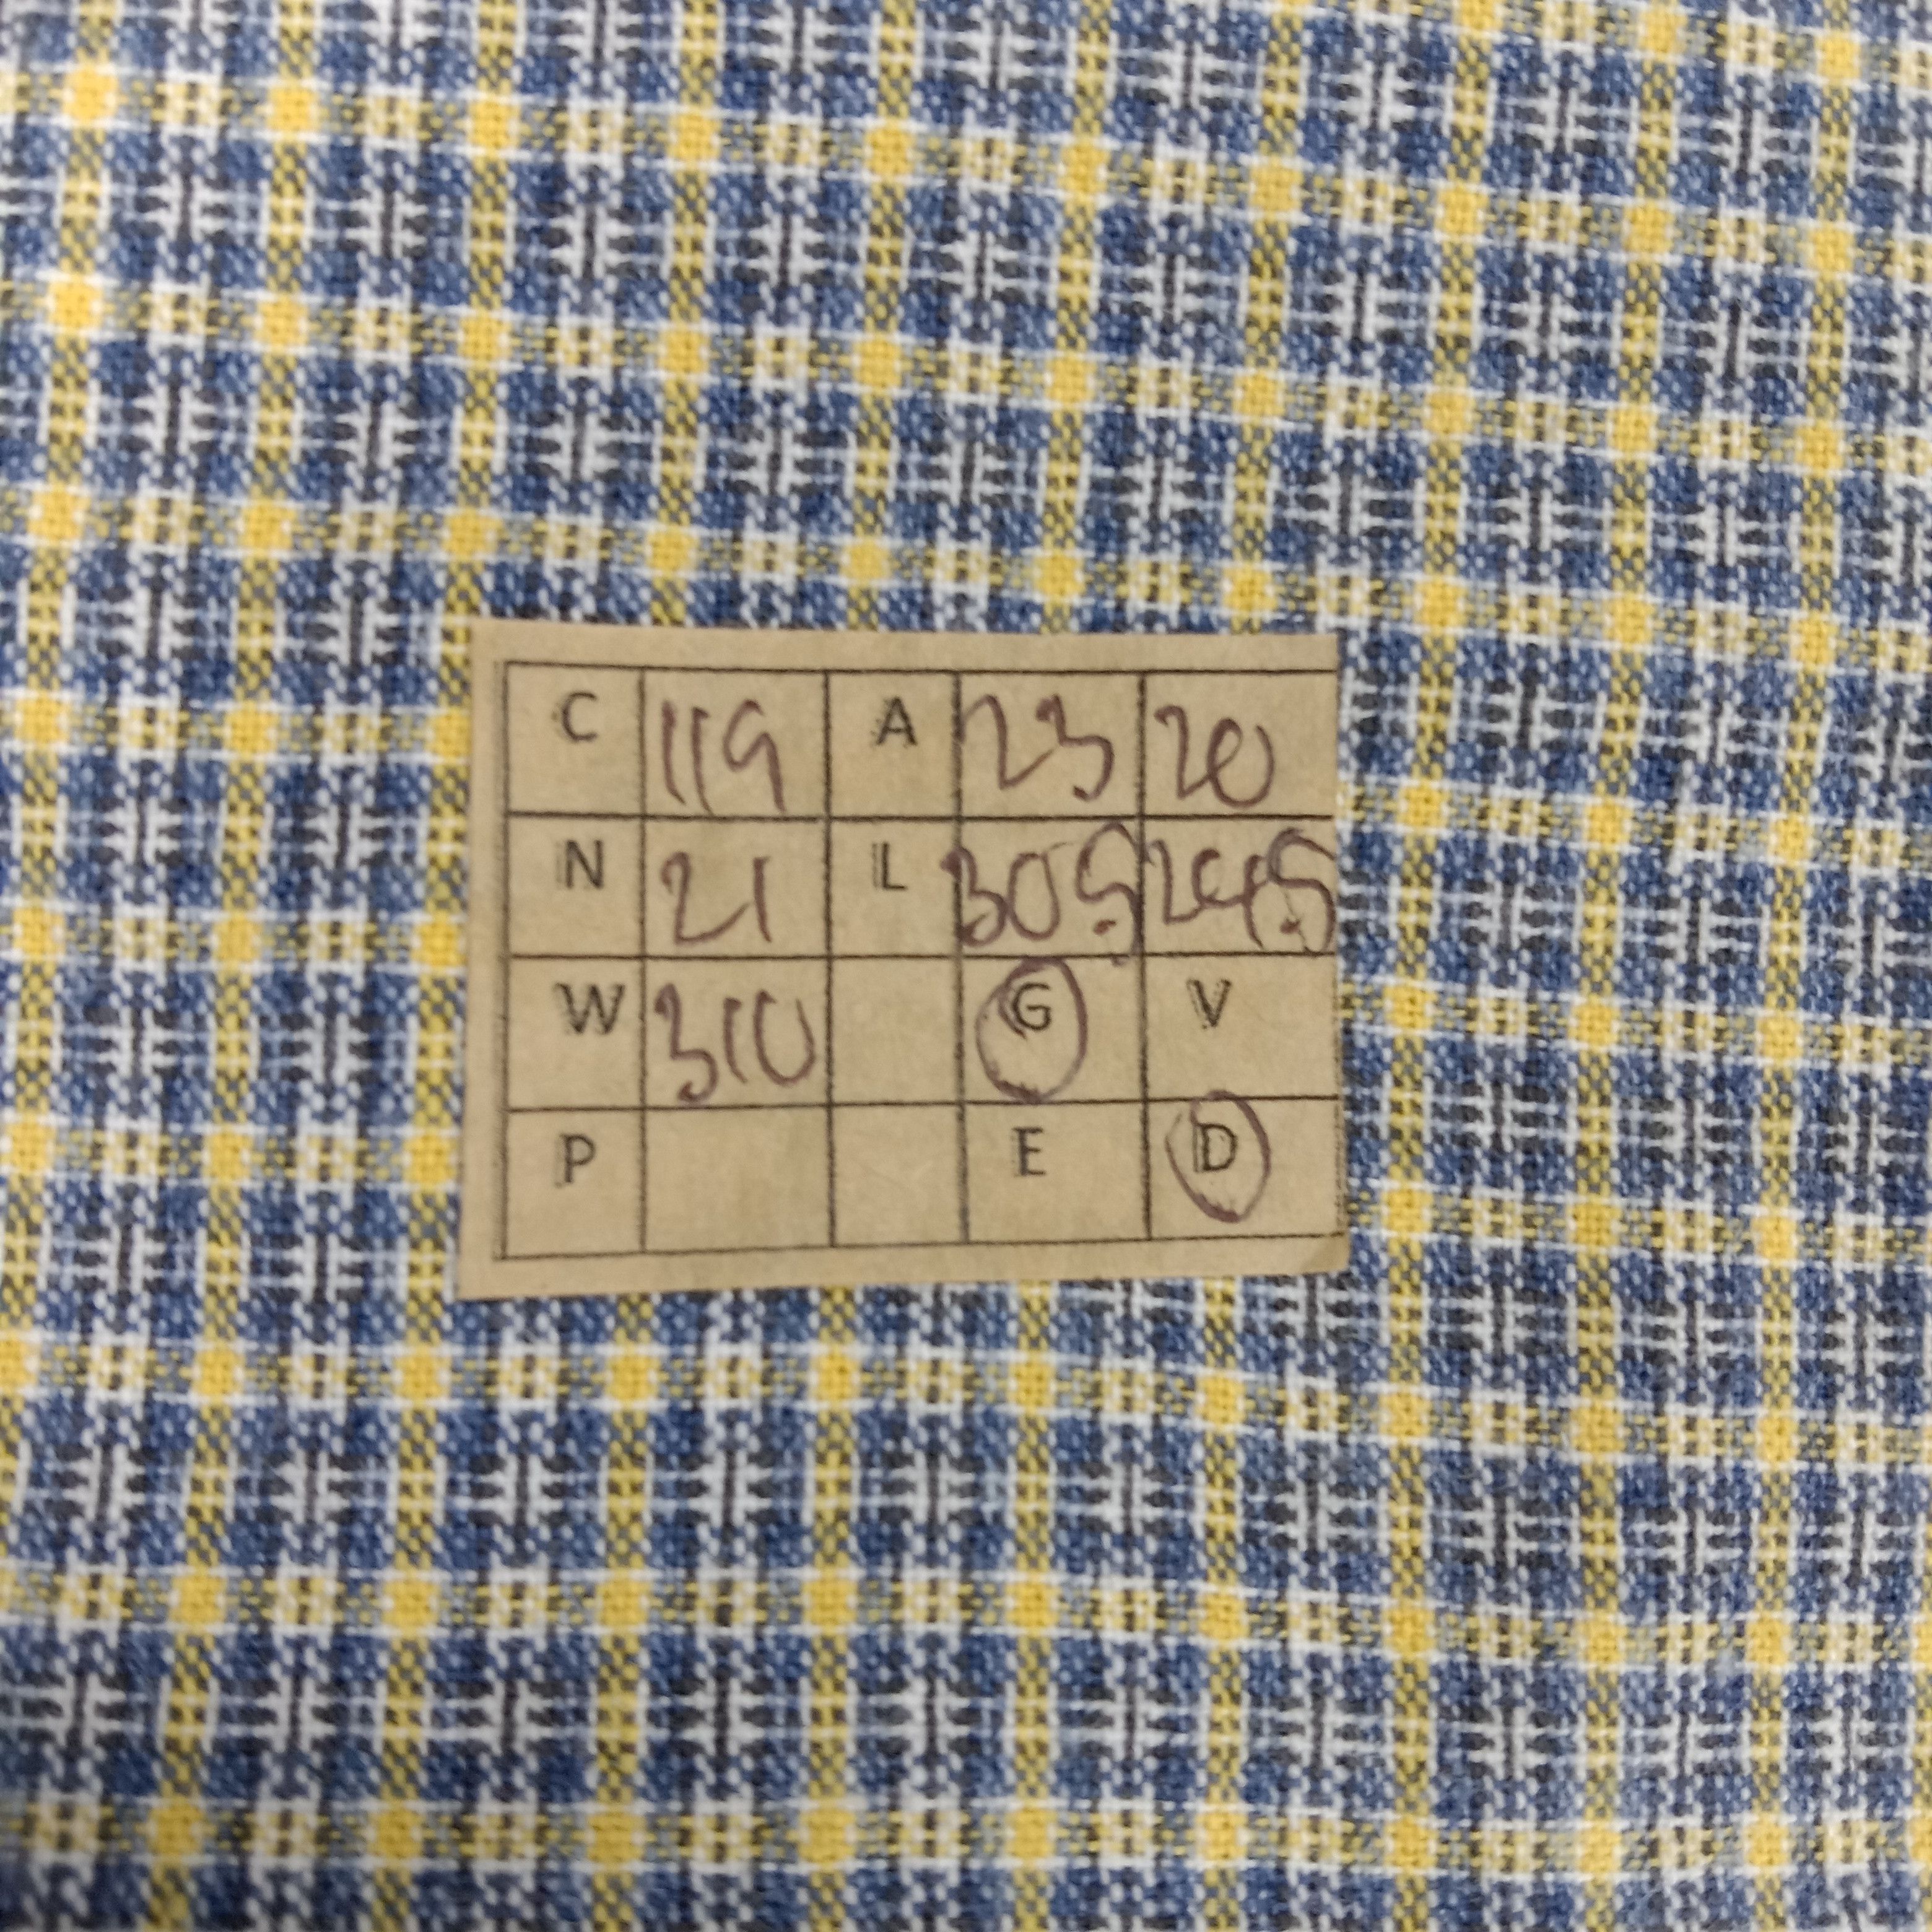 C 119 A 23 20
N 21 L 305 245
W 310 G V
P E D